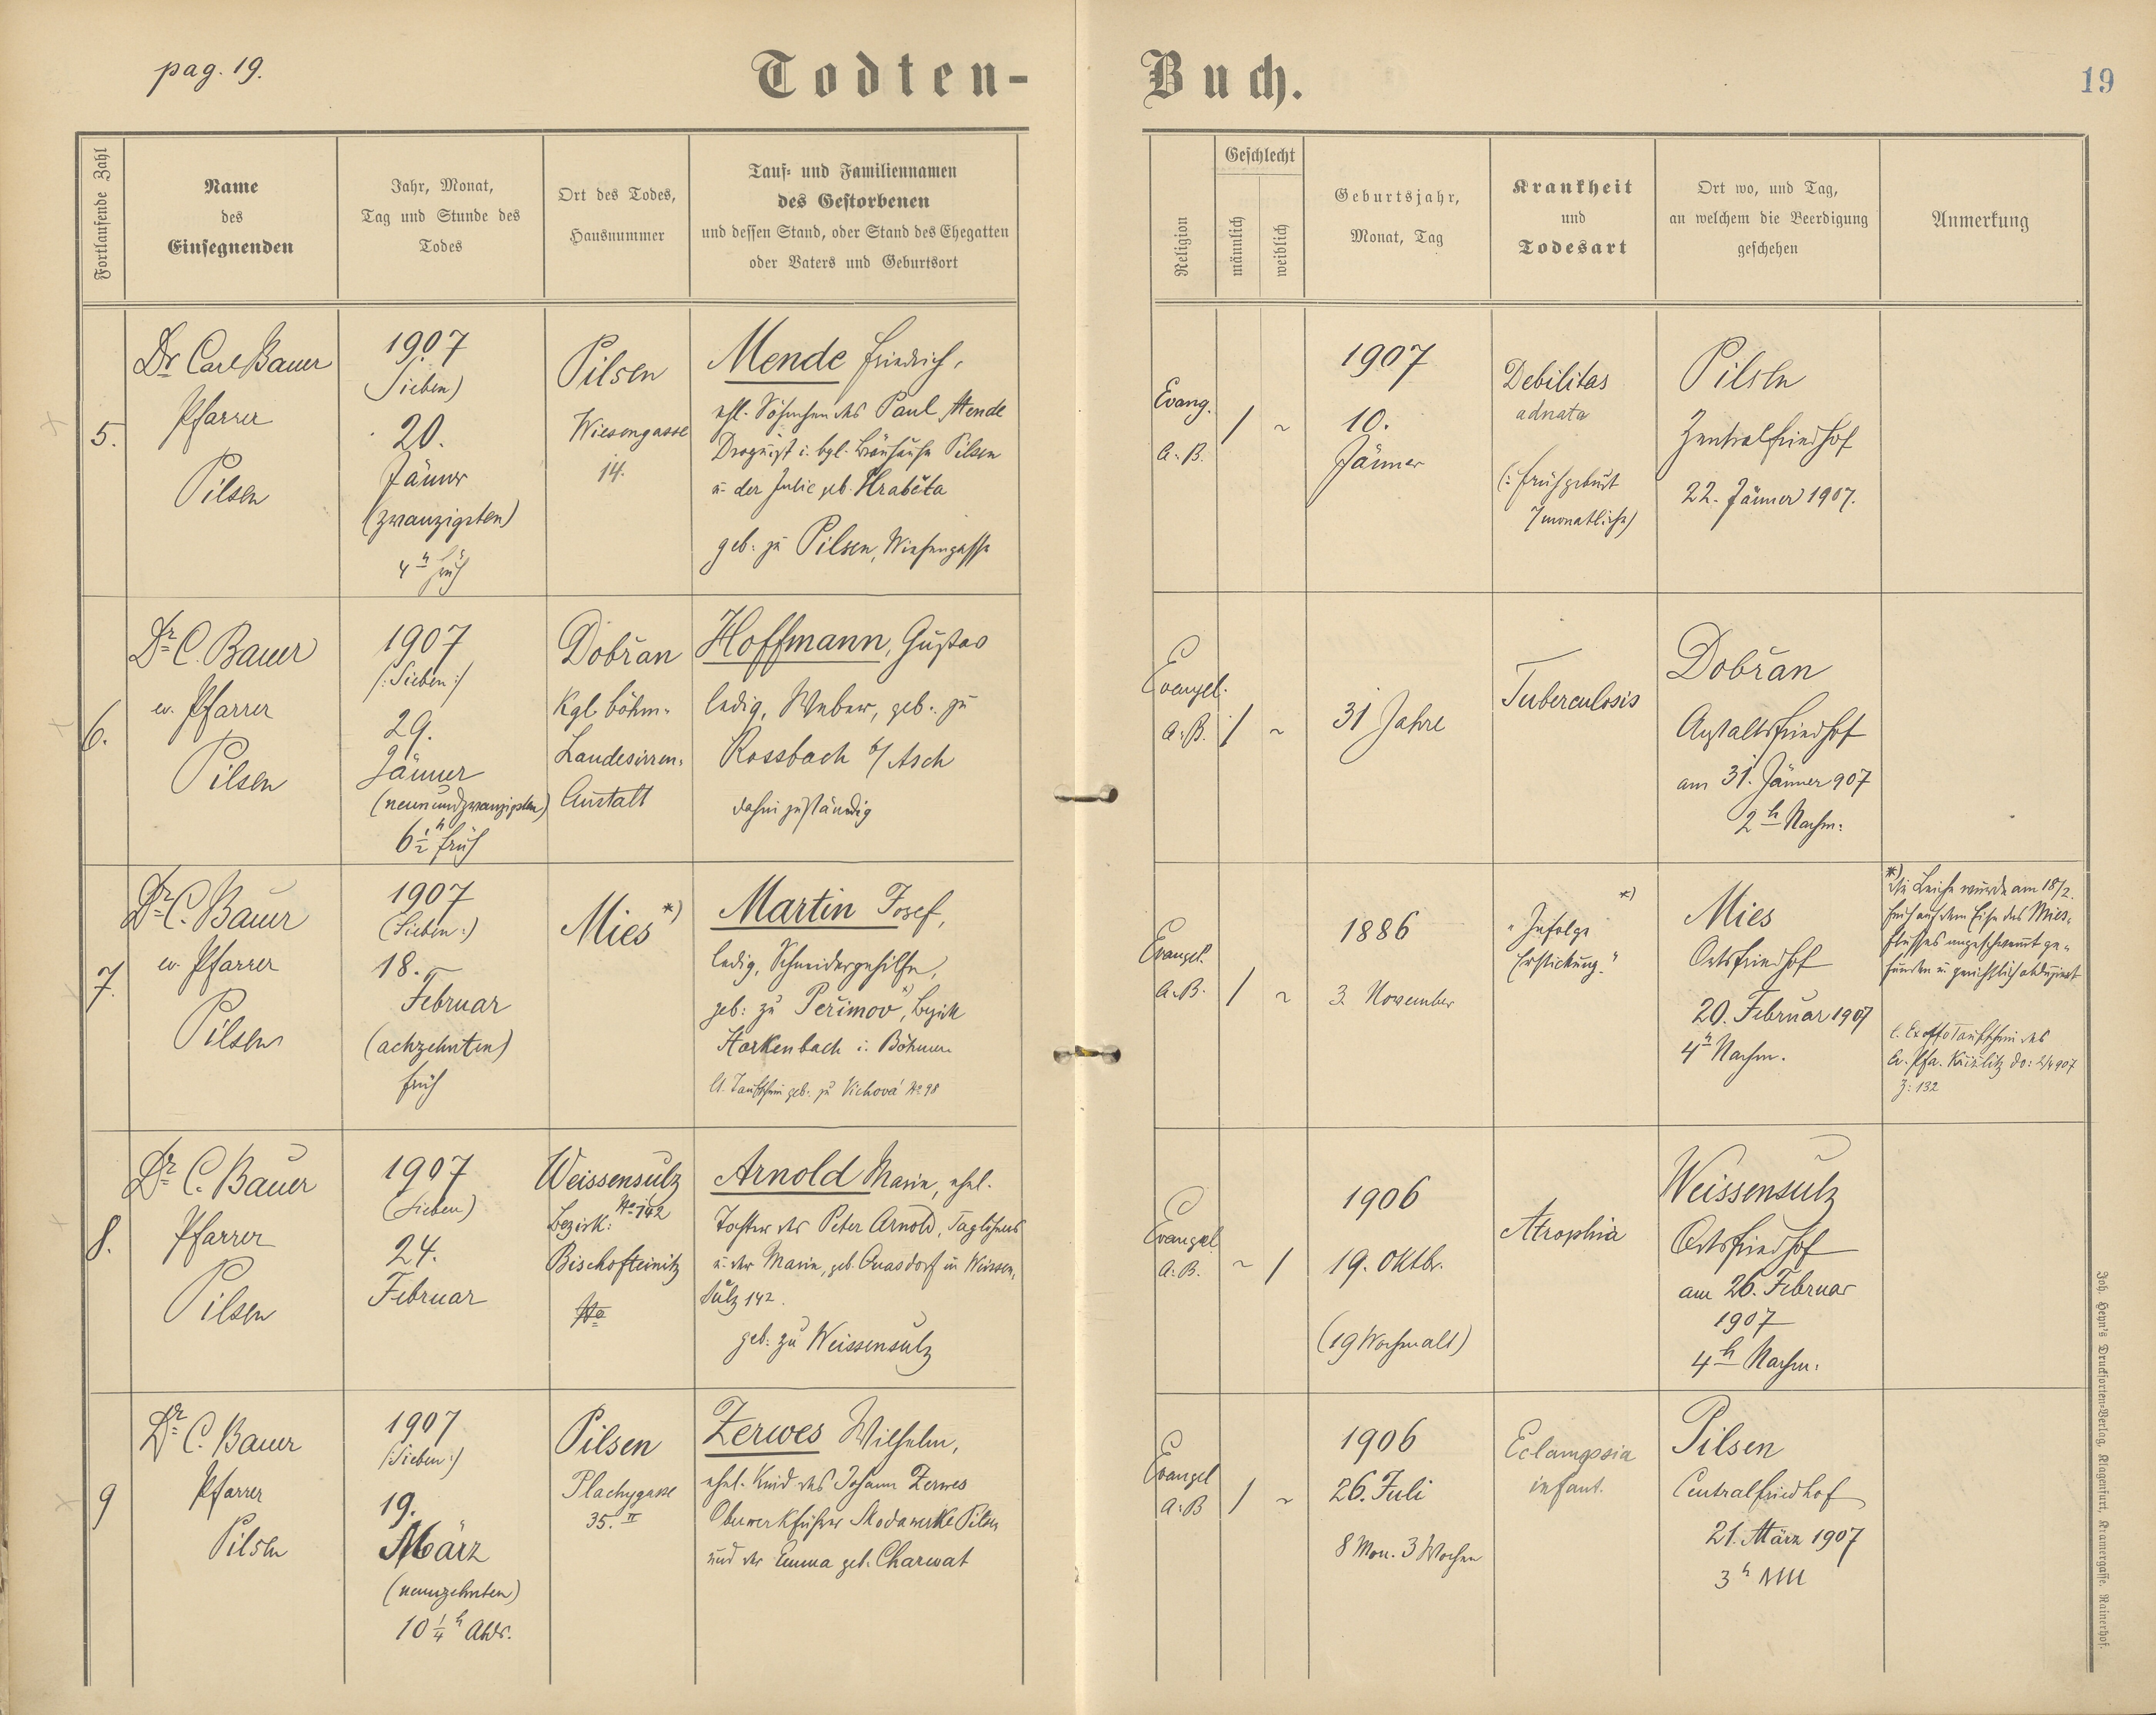 pag. 19.
Todten-
Buch.
19
Fortlaufende Zahl
Name
des
Einsegnenden
Jahr, Monat,
Tag und Stunde des
Todes
Ort des Todes,
Hausnummer
Tauf- und Familiennamen
des Gestorbenen
und dessen Stand, oder Stand des Ehegatten
oder Vaters und Geburtsort
Religion
Geschlecht
männlich
weiblich
Geburtsjahr,
Monat, Tag
Krankheit
und
Todesart
Ort wo, und Tag,
an welchem die Beerdigung
geschehen
Anmerkung
5.
Dr Carl Bauer
Pfarrer
Pilsen
1907
(Sieben)
20.
Jänner
(zwanzigsten)
4 h früh
Pilsen
Wiesengasse
14.
Mende Friedrich,
ehl. Söhnchen des Paul Mende
Droguist i. bgl. Bräuhause Pilsen
u. der Julie geb. Hraběta
geb: zu Pilsen, Wiesengasse
Evang.
A. B.
/ ~
1907
10.
Jänner
Debilitas
adnata
(: Frühgeburt
7 monatliche)
Pilsen
Zentralfriedhof
22. Jänner 1907.
6.
Dr C. Bauer
ev. Pfarrer
Pilsen
1907
/: Sieben :/
29.
Jänner
(neunundzwanzigsten)
6 1/2 h früh
Dobřan
Kgl. böhm.
Landesirren-
Anstalt
Hoffmann, Gustav
ledig, Weber, geb. zu
Rossbach b/ Asch
dahin zuständig
Evangel.
A. B.
/ ~
31 Jahre
Tuberculosis
Dobřan
Anstaltsfriedhof
am 31. Jänner 907
2 h Nachm:
7.
Dr C. Bauer
ev. Pfarrer
Pilsen
1907
(Sieben:)
18.
Februar
(achzehnten)
früh
Mies *)
Martin Josef,
ledig, Schneidergehilfe,
geb: zu Peřimov *), Bezirk
Starkenbach i. Böhmen
lt. Taufschein geb. zu Vichová No 98
Evangel.
A. B.
/ ~
1886
3. November
*)
"Infolge
Erstickung."
Mies
Ortsfriedhof
20. Februar 1907
4 h Nachm.
*) Die Leiche wurde am 18/2.
früh auf dem Eise des Mies-
flusses angeschwemmt ge-
funden u. gerichtlich obduziert
l. Ex offo Taufschein des
ev. Pfa. Križlitz do: 2/4 907
Z: 132
8.
Dr C. Bauer
Pfarrer
Pilsen
1907
(Sieben)
24.
Februar
Weissensulz
No 142
Bezirk:
Bischofteinitz
No
Arnold Marie, ehel.
Tochter des Peter Arnold, Taglöhners
u. der Marie, geb. Quasdorf in Weissen-
sulz 142.
geb: zu Weissensulz
Evangel
A. B.
~ /
1906
19. Oktbr.
(19 Wochen alt)
Atrophia
Weissensulz
Ortsfriedhof
am 26. Februar
1907
4 h Nachm:
9
Dr C. Bauer
Pfarrer
Pilsen
1907
/: Sieben :/
19.
März
(neunzehnten)
10 1/4 h Abds.
Pilsen
Plachygasse
35. II
Zerwes Wilhelm,
ehel. Kind des Johann Zerwes
Oberwerkführer Skodawerke Pilsen
und der Emma geb. Charwat
Evangel
A. B
/ ~
1906
26. Juli
8 Mon. 3 Wochen
Eclampsia
infant.
Pilsen
Centralfriedhof
21. März 1907
3 h NM
Joh. Heyn's Drucksorten-Verlag, Klagenfurt, Kramergasse, Rainerhof.